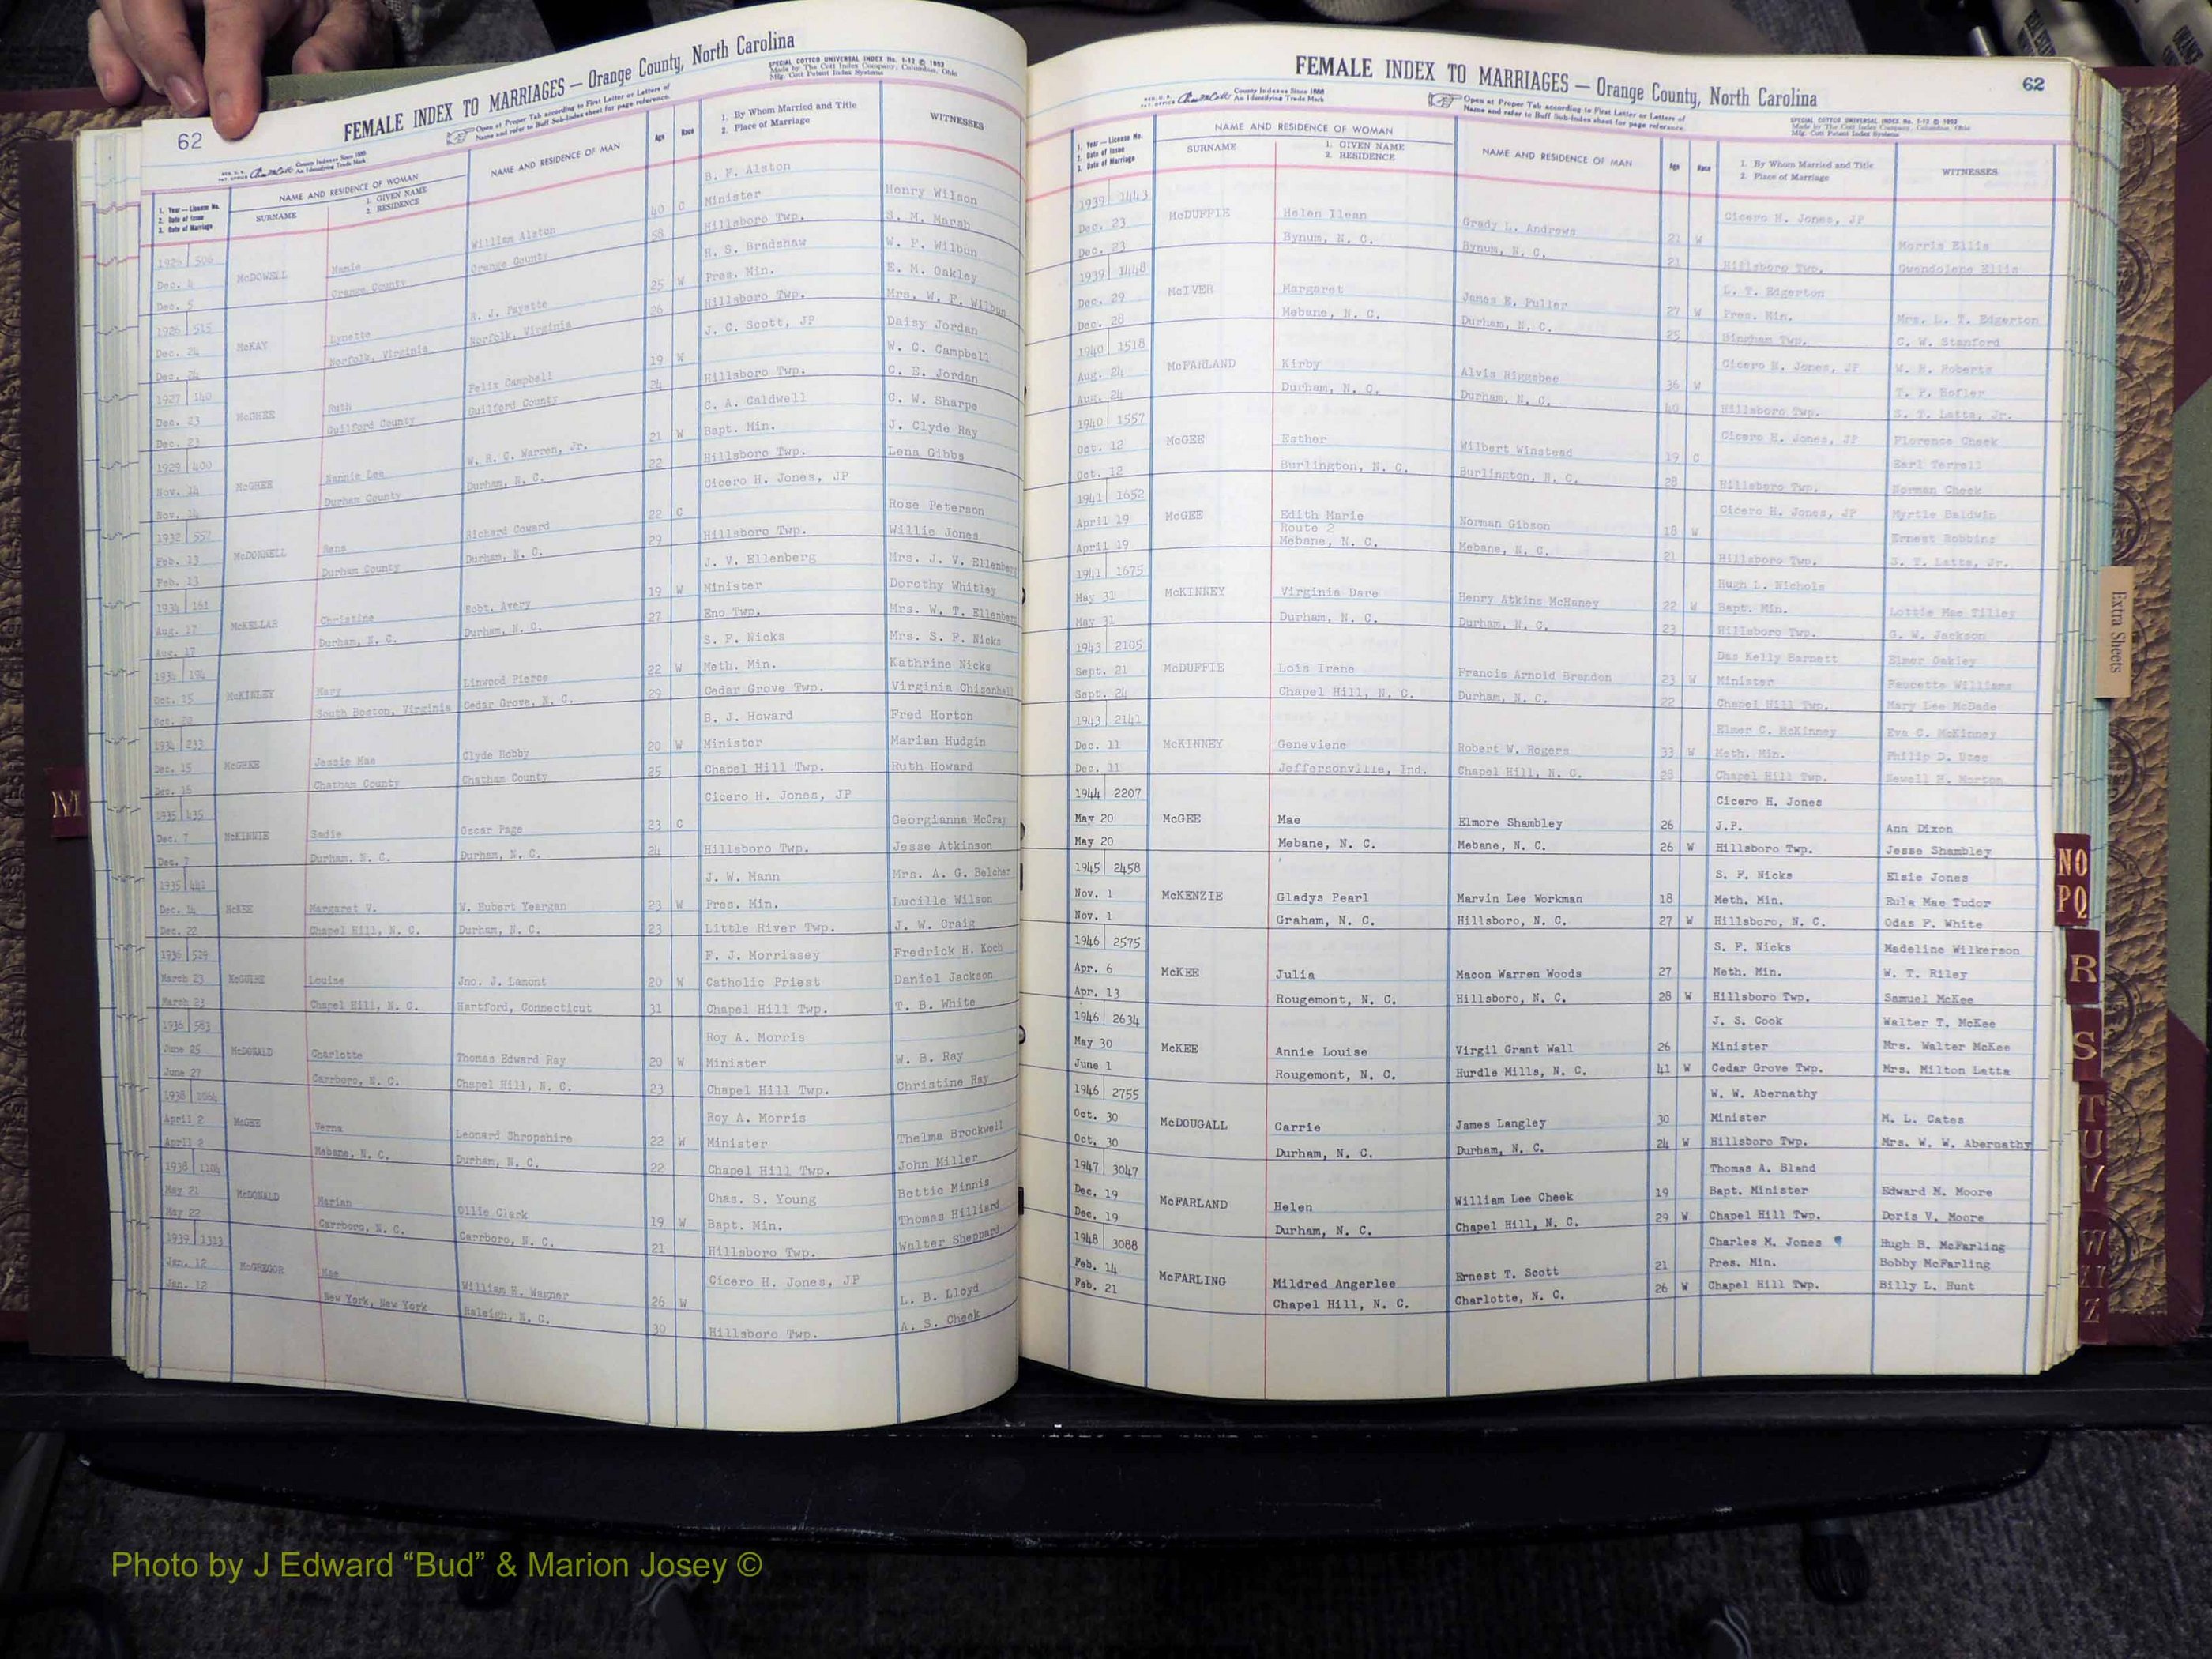 62
FEMALE INDEX TO MARRIAGES — Orange County, North Carolina
SPECIAL COTTCO UNIVERSAL INDEX No. 1-12 © 1952
Made by The Cott Index Company, Columbus, Ohio
Mfg. Cott Patent Index Systems
County Indexes Since 1888
An Identifying Trade Mark
Open at Proper Tab according to First Letter or Letters of
Name and refer to Buff Sub-Index sheet for page reference.
1. Year — License No.
2. Date of Issue
3. Date of Marriage
NAME AND RESIDENCE OF WOMAN
SURNAME
1. GIVEN NAME
2. RESIDENCE
NAME AND RESIDENCE OF MAN
Age
Race
1. By Whom Married and Title
2. Place of Marriage
WITNESSES
B. F. Alston
1926 506 William Alston 40 C Minister Henry Wilson
Dec. 4 McDOWELL Mamie Orange County 58 Hillsboro Twp. S. M. Marsh
Dec. 5 Orange County H. S. Bradshaw W. F. Wilbun
1926 515 Lynette H. J. Payette 25 W Pres. Min. E. M. Oakley
Dec. 24 McKAY Norfolk, Virginia Norfolk, Virginia 26 Hillsboro Twp. Mrs. W. F. Wilbun
Dec. 24 J. C. Scott, JP Daisy Jordan
1927 140 Ruth Felix Campbell 19 W W. C. Campbell
Dec. 23 McGHEE Guilford County Guilford County 24 Hillsboro Twp. C. E. Jordan
Dec. 23 C. A. Caldwell C. W. Sharpe
1929 400 Nannie Lee W. H. C. Warren, Jr. 21 W Bapt. Min. J. Clyde Ray
Nov. 14 McGHEE Durham County Durham, N. C. 22 Hillsboro Twp. Lena Gibbs
Nov. 14 Cicero H. Jones, JP
1932 557 Richard Coward 22 C Rose Peterson
Feb. 13 McDONNELL Durham County Durham, N. C. 29 Hillsboro Twp. Willie Jones
Feb. 13 J. V. Ellenberg Mrs. J. V. Ellenberg
1934 161 Christine Robt. Avery 19 W Minister Dorothy Whitley
Aug. 17 McKELLAR Durham, N. C. Durham, N. C. 27 Eno Twp. Mrs. W. T. Ellenberg
Aug. 17 S. F. Nicks Mrs. S. F. Nicks
1934 194 Mary Linwood Pierce 22 W Meth. Min. Kathrine Nicks
Oct. 15 McKINLEY South Boston, Virginia Cedar Grove, N. C. 29 Cedar Grove Twp. Virginia Chisenhall
Oct. 20 B. J. Howard Fred Horton
1934 233 Jessie Mae Clyde Hobby 20 W Minister Marian Hudgin
Dec. 15 McGHEE Chatham County Chatham County 25 Chapel Hill Twp. Ruth Howard
Dec. 16 Cicero H. Jones, JP
1935 435 Georgianna McCray
Dec. 7 McKINNIE Sadie Oscar Page 23 C
Dec. 7 Durham, N. C. Durham, N. C. 24 Hillsboro Twp. Jesse Atkinson
1935 441 J. W. Mann Mrs. A. G. Belcher
Dec. 14 McKEE Margaret V. W. Hubert Yeargan 23 W Pres. Min. Lucille Wilson
Dec. 22 Chapel Hill, N. C. Durham, N. C. 23 Little River Twp. J. W. Craig
1936 529 F. J. Morrissey Fredrick H. Koch
March 23 McGUIRE Louise Jno. J. Lamont 20 W Catholic Priest Daniel Jackson
March 23 Chapel Hill, N. C. Hartford, Connecticut 31 Chapel Hill Twp. T. B. White
1936 583 Roy A. Morris
June 25 McDONALD Charlotte Thomas Edward Ray 20 W Minister W. B. Ray
June 27 Carrboro, N. C. Chapel Hill, N. C. 23 Chapel Hill Twp. Christine Ray
1938 1064 Roy A. Morris
April 2 McGEE Verna Leonard Shropshire 22 W Minister Thelma Brockwell
April 2 Mebane, N. C. Durham, N. C. 22 Chapel Hill Twp. John Miller
1938 1104 Chas. S. Young Bettie Minnis
May 21 McDONALD Marian Ollie Clark 19 W Bapt. Min. Thomas Hilliard
May 22 Carrboro, N. C. Carrboro, N. C. 21 Hillsboro Twp. Walter Sheppard
1939 1313 Cicero H. Jones, JP
Jan. 12 McGREGOR Mae William H. Wagner 26 W L. B. Lloyd
Jan. 12 New York, New York Raleigh, N. C. 30 Hillsboro Twp. A. S. Cheek
62
FEMALE INDEX TO MARRIAGES — Orange County, North Carolina
SPECIAL COTTCO UNIVERSAL INDEX No. 1-12 © 1952
Made by The Cott Index Company, Columbus, Ohio
Mfg. Cott Patent Index Systems
County Indexes Since 1888
An Identifying Trade Mark
Open at Proper Tab according to First Letter or Letters of
Name and refer to Buff Sub-Index sheet for page reference.
1. Year — License No.
2. Date of Issue
3. Date of Marriage
NAME AND RESIDENCE OF WOMAN
SURNAME
1. GIVEN NAME
2. RESIDENCE
NAME AND RESIDENCE OF MAN
Age
Race
1. By Whom Married and Title
2. Place of Marriage
WITNESSES
1939 1443 Cicero H. Jones, JP
Dec. 23 McDUFFIE Helen Ilean Grady L. Andrews 21 W Morris Ellis
Dec. 23 Bynum, N. C. Bynum, N. C. 21 Hillsboro Twp. Gwendolene Ellis
1939 1448 L. T. Edgerton
Dec. 29 McIVER Margaret James E. Fuller 27 W Pres. Min. Mrs. L. T. Edgerton
Dec. 28 Mebane, N. C. Durham, N. C. 25 Bingham Twp. C. W. Stanford
1940 1518 Cicero H. Jones, JP W. H. Roberts
Aug. 24 McFARLAND Kirby Alvis Higgsbee 36 W T. F. Hofler
Aug. 24 Durham, N. C. Durham, N. C. 40 Hillsboro Twp. S. T. Latta, Jr.
1940 1557 Cicero H. Jones, JP Florence Cheek
Oct. 12 McGEE Esther Wilbert Winstead 19 C Earl Terrell
Oct. 12 Burlington, N. C. Burlington, N. C. 28 Hillsboro Twp. Norman Cheek
1941 1652 Cicero H. Jones, JP Myrtle Baldwin
April 19 McGEE Edith Marie Norman Gibson 18 W Ernest Robbins
Route 2
April 19 Mebane, N. C. Mebane, N. C. 21 Hillsboro Twp. S. T. Latta, Jr.
1941 1675 Hugh L. Nichols
May 31 McKINNEY Virginia Dare Henry Atkins McHaney 22 W Bapt. Min. Lottie Mae Tilley
May 31 Durham, N. C. Durham, N. C. 23 Hillsboro Twp. G. W. Jackson
1943 2105 Das Kelly Barnett Elmer Oakley
Sept. 21 McDUFFIE Lois Irene Francis Arnold Brandon 23 W Minister Faucette Williams
Sept. 24 Chapel Hill, N. C. Durham, N. C. 22 Chapel Hill Twp. Mary Lee McDade
1943 2141 Elmer C. McKinney Eva C. McKinney
Dec. 11 McKINNEY Geneviene Robert W. Rogers 33 W Meth. Min. Philip D.
Dec. 11 Jeffersonville, Ind. Chapel Hill, N. C. 28 Chapel Hill Twp. Newell H. Morton
1944 2207 Cicero H. Jones
May 20 McGEE Mae Elmore Shambley 26 J.P. Ann Dixon
May 20 Mebane, N. C. Mebane, N. C. 26 W Hillsboro Twp. Jesse Shambley
1945 2458 S. F. Nicks Elsie Jones
Nov. 1 McKENZIE Gladys Pearl Marvin Lee Workman 18 Meth. Min. Eula Mae Tudor
Nov. 1 Graham, N. C. Hillsboro, N. C. 27 W Hillsboro, N. C. Odas F. White
1946 2575 S. F. Nicks Madeline Wilkerson
Apr. 6 McKEE Julia Macon Warren Woods 27 Meth. Min. W. T. Riley
Apr. 13 Rougemont, N. C. Hillsboro, N. C. 28 W Hillsboro Twp. Samuel McKee
1946 2634 J. S. Cook Walter T. McKee
May 30 McKEE Annie Louise Virgil Grant Wall 26 Minister Mrs. Walter McKee
June 1 Rougemont, N. C. Hurdle Mills, N. C. 41 W Cedar Grove Twp. Mrs. Milton Latta
1946 2755 W. W. Abernathy
Oct. 30 McDOUGALL Carrie James Langley 30 Minister M. L. Cates
Oct. 30 Durham, N. C. Durham, N. C. 24 W Hillsboro Twp. Mrs. W. W. Abernathy
1947 3047 Thomas A. Bland
Dec. 19 McFARLAND Helen William Lee Cheek 19 Bapt. Minister Edward M. Moore
Dec. 19 Durham, N. C. Chapel Hill, N. C. 29 W Chapel Hill Twp. Doris V. Moore
1948 3088 Charles M. Jones Hugh B. McFarling
Feb. 14 McFARLING Mildred Angerlee Ernest T. Scott 21 Pres. Min. Bobby McFarling
Feb. 21 Chapel Hill, N. C. Charlotte, N. C. 26 W Chapel Hill Twp. Billy L. Hunt
M
Extra Sheets
NO
PQ
R
S
T
U
V
W
Z
Photo by J Edward “Bud” & Marion Josey ©